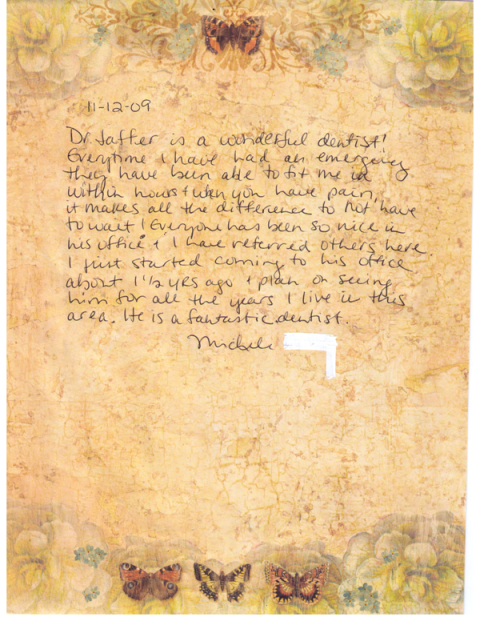 11-12-09
Dr. Jaffer is a wonderful dentist!
Everytime I have had an emergency
they have been able to fit me in
within hours & when you have pain,
it makes all the difference to not have
to wait! Everyone has been so nice in
his office & I have referred others here.
I just started coming to his office
about 1 1/2 yrs ago & plan on seeing
him for all the years I live in this
area. He is a fantastic dentist.
Michele